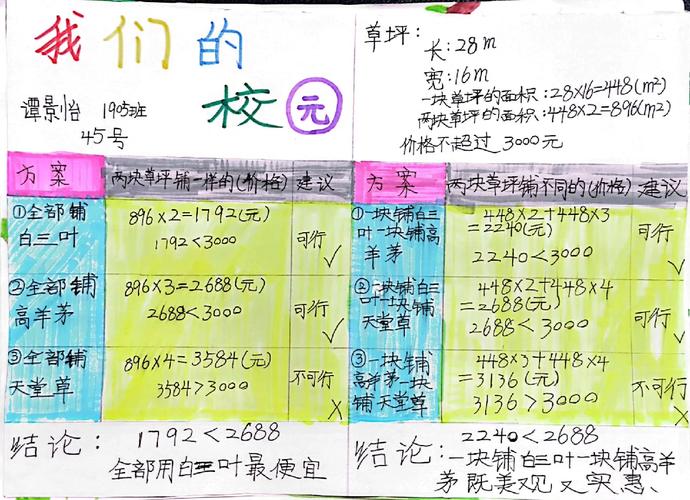 我们的
校元
谭景怡 1905班
45号
草坪：
长：28m
宽：16m
一块草坪的面积：28×16=448(m²)
两块草坪的面积：448×2=896(m²)
价格不超过3000元
方案 两块草坪铺一样的(价格) 建议
①全部铺
白三叶
896×2=1792(元)
1792<3000
可行
✓
②全部铺
高羊茅
896×3=2688(元)
2688<3000
可行
✓
③全部铺
天堂草
896×4=3584(元)
3584>3000
不可行
×
结论：1792<2688
全部用白三叶最便宜
方案 两块草坪铺不同的(价格) 建议
①一块铺白三
叶一块铺高
羊茅
448×2+448×3
=2240(元)
2240<3000
可行
✓
②一块铺白三
叶一块铺
天堂草
448×2+448×4
=2688(元)
2688<3000
可行
✓
③一块铺
高羊茅一块
铺天堂草
448×3+448×4
=3136(元)
3136>3000
不可行
×
结论：2240<2688
一块铺白三叶一块铺高羊
茅既美观又实惠、